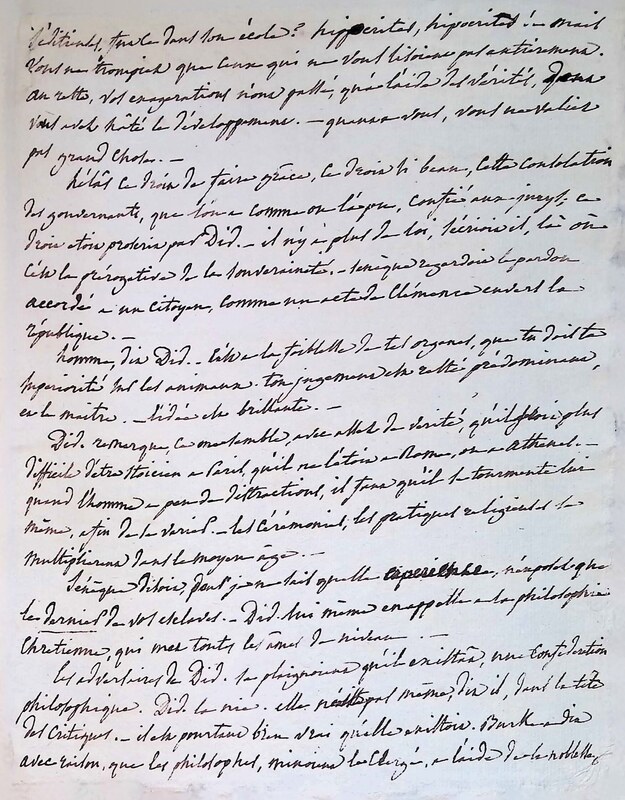 séditieuses, fut-ce dans son école? hippocrites, hipocrites! – mais
Vous ne trompiez que ceux qui ne vous lisoient pas entièrement.
au reste, vos exagérations n'ont passé, qu'à l'aide des vérités, dont
vous avez hâté le développement. – quant à vous, vous ne valiez
pas grand chose. –
hélas ce droit de faire grâce, ce droit si beau, cette consolation
des gouvernants, que l'on a comme on l'a pu, confié aux jurys; ce
droit étoit proscrit par Did. – il n'y a plus de loi, s'écrioit il, là où
c'est la prérogative de la souveraineté. – Senèque regardoit le pardon
accordé à un citoyen, comme un acte de clémence envers la
république. –
homme, dit Did. – c'est à la foiblesse de tes organes, que tu dois ta
supériorité sur les animaux. ton jugement est resté prédominant,
en le maitre. – l'idée est brillante. –
Did. remarque, ce me semble, avec assez de vérité, qu'il étoit plus
difficile d'être stoïcien à Paris, qu'il ne l'étoit à Rome, ou à Athenes. –
quand l'homme a peu de distractions, il faut qu'il se tourmente lui
même, afin de se varier. – les cérémonies, les pratiques religieuses se
multiplierent dans le moyen âge. –
Sénèque disoit, pour je ne sait quelle experience, n'exposez que
le dernier de vos esclaves. – Did. lui même en appelle à la philosophie
Chretienne, qui met toutes les âmes de niveau. –
les adversaires de Did. se plaignoient qu'il existât, une confédération
philosophique. Did. la nie. elle n'existe pas même, dit il, dans la tête
des critiques. – il est pourtant bien vrai qu'elle existoit. Burke a dit
avec raison, que les philosophes, minoient le Clergé, à l'aide de la noblesse,